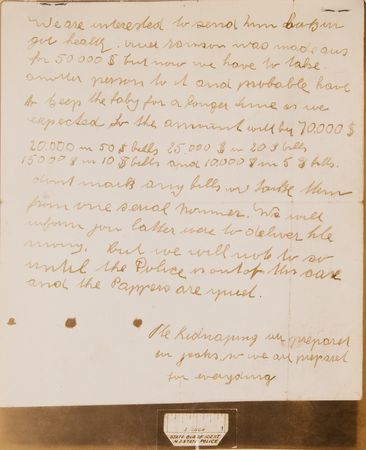 We are interested to send him back in
gut health. ouer ransom was made aus
for 50000 $ but now we have to take
another person to it and probable have
to keep the baby for a longer time as we
expected So the amount will by 70,000 $
20.000 in 50 $ bills 25.000 $ in 20 $ bills
15000 $ in 10 $ bills and 10.000 $ in 5 $ bills.
dont mark any bills or tacke them
from one serial nommer. We will
inform you latter were to deliver the
mony. but we will not to so
until the Police is out of this case
and the Pappers are quiet.
The Kidnaping we preparet
for yeahs, so we are preparet
for everyding
1 INCH
STATE BUR OF IDENT
N.J. STATE POLICE